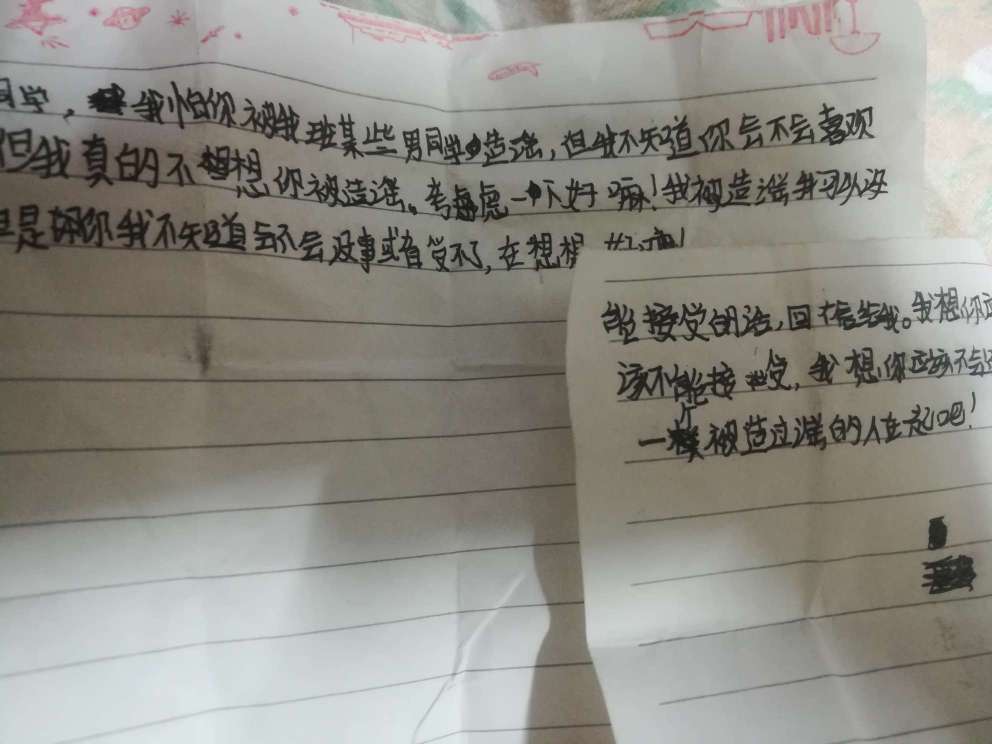 同学，我怕你被我班某些男同学造谣，但我不知道你会不会喜欢
但我真的不想想你被造谣。考虑一下好嘛！我被造谣我可以没
是 你我不知道会不会没事或者受不了，在想想
能接受的话，回信给我。我想你应
该不能接受，我想你应该不会
一个被造过谣的人在一起吧！